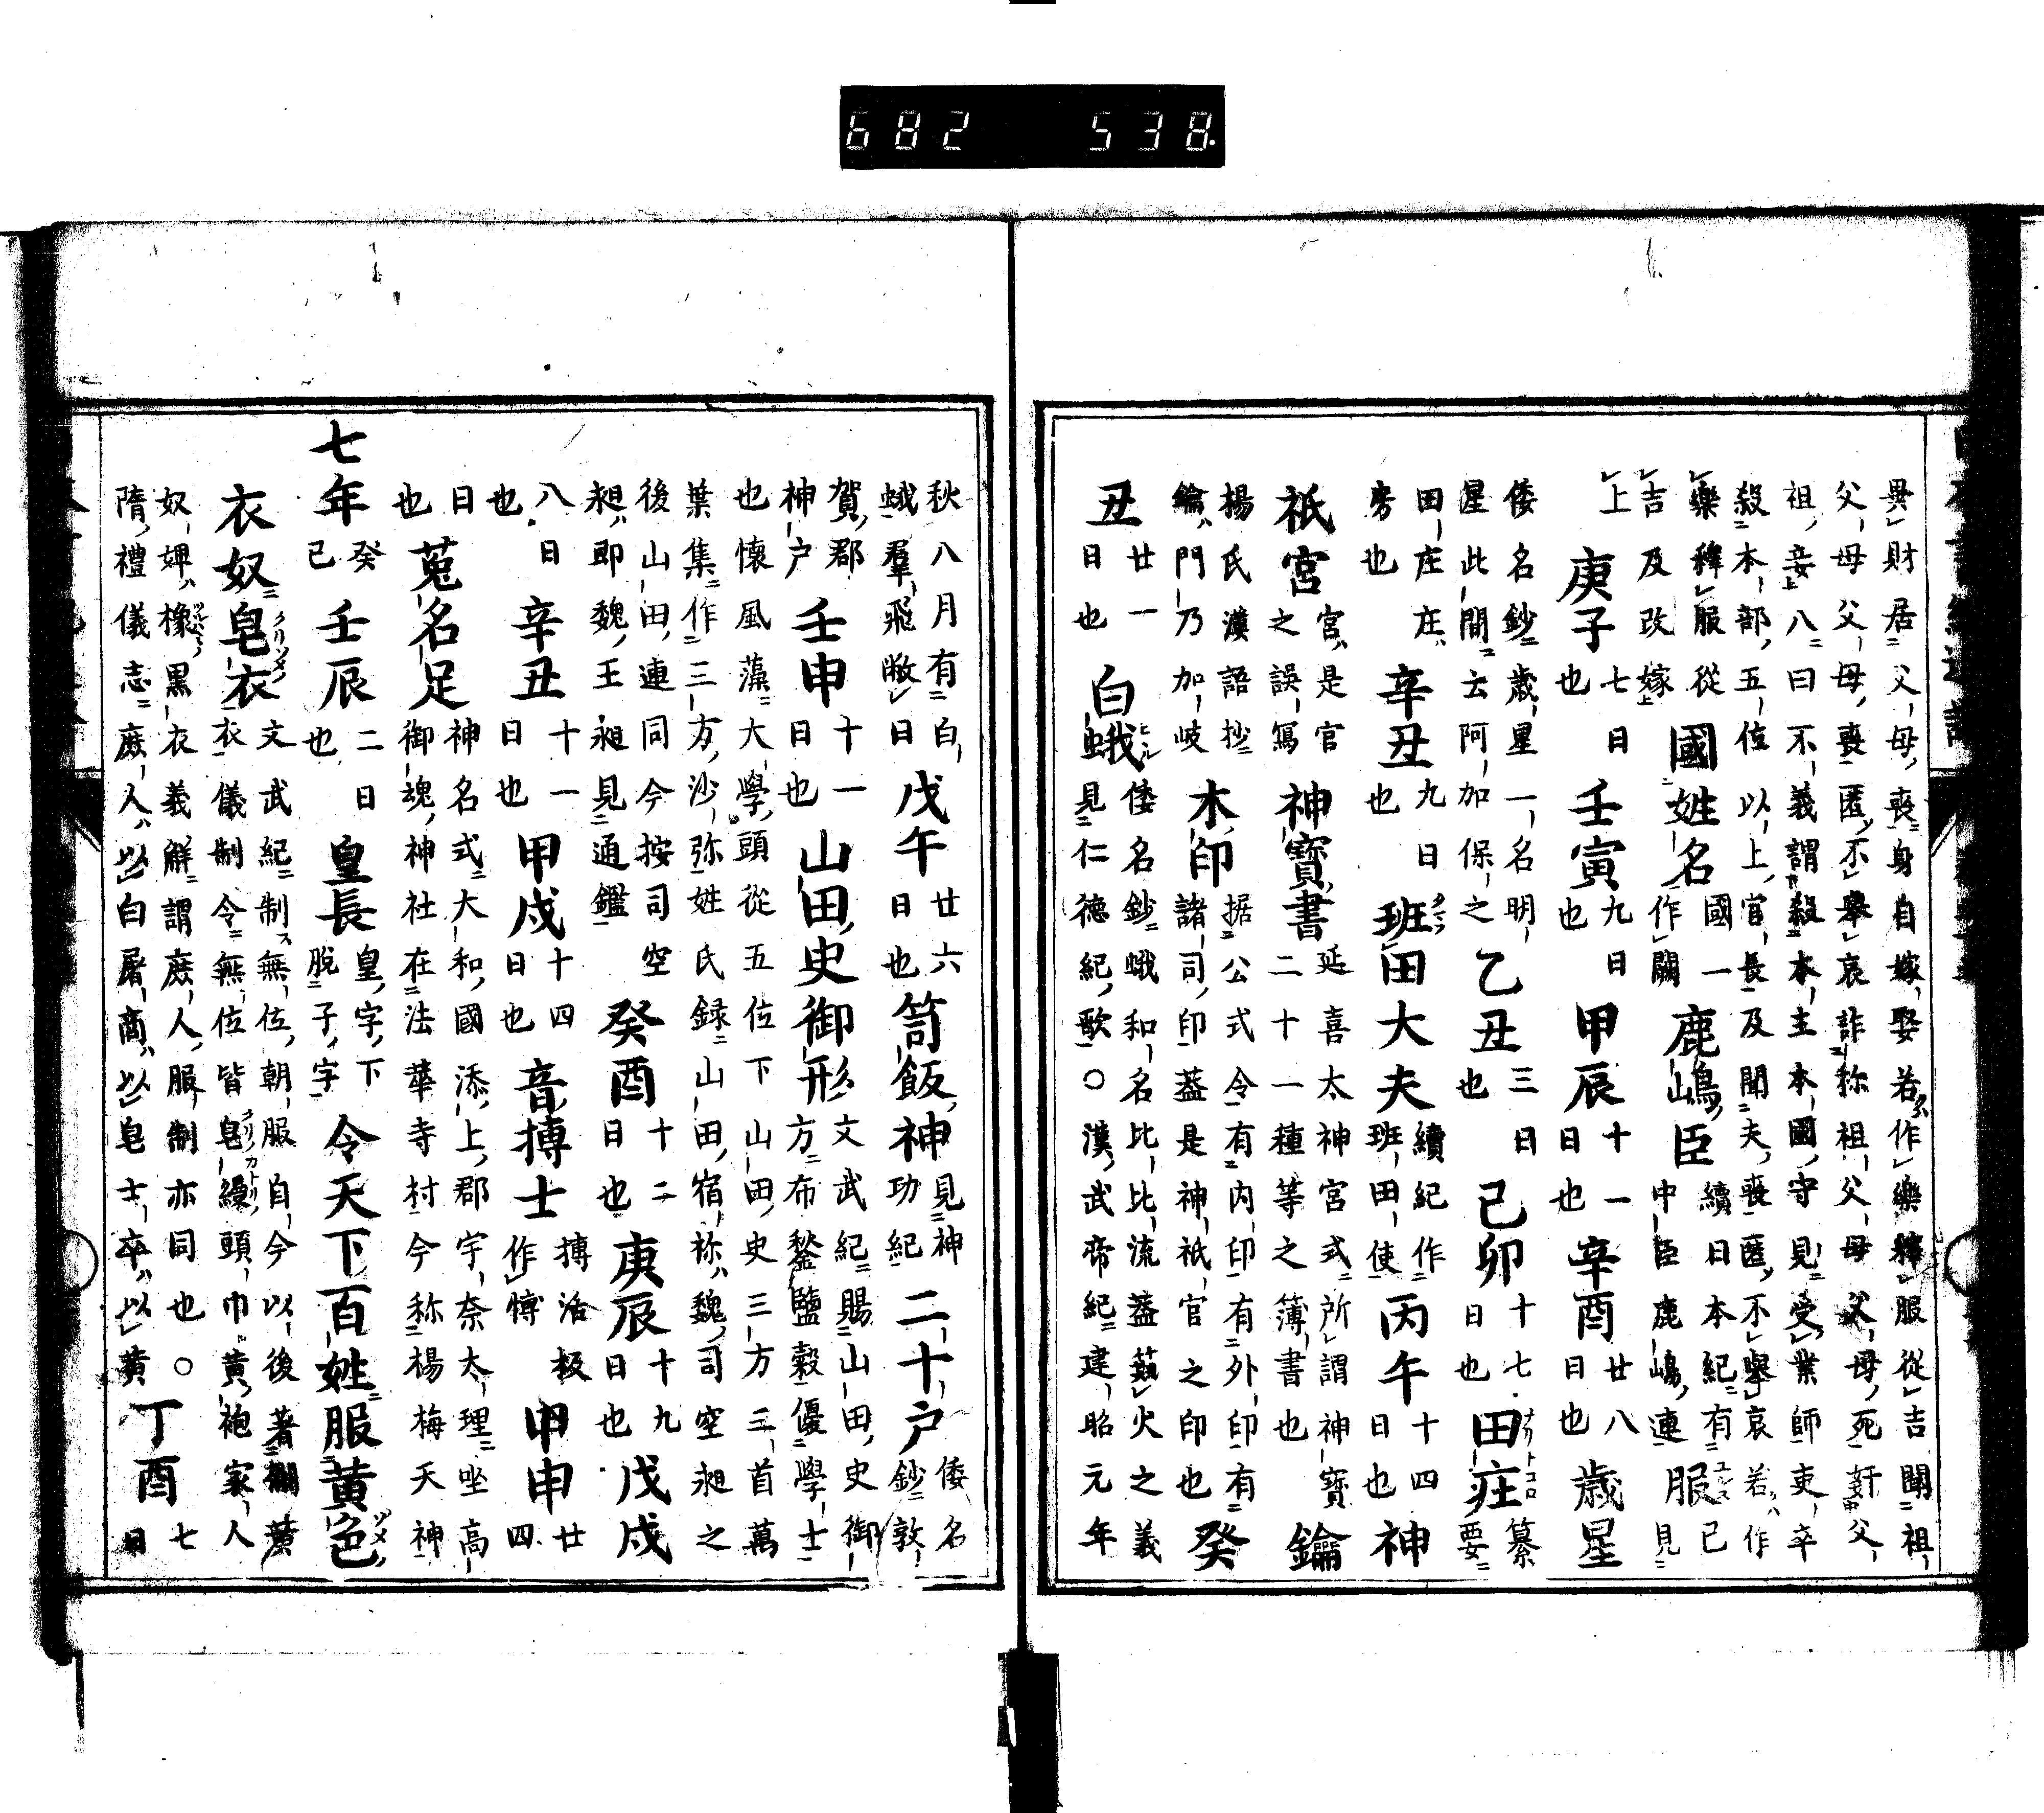 682 538
異財居父母喪身自嫁娶若作樂釋服從吉聞祖
父母父母喪匿不舉哀詐称祖父母父母死奸父
祖妾八曰不義謂殺本主本國守見受業師吏卒
殺本部五位以上官長及聞夫喪匿不舉哀若作
樂釋服從
吉及改嫁
國姓名
國一
作闕
鹿嶋臣
續日本紀有
中臣鹿嶋連
服
已
見
上
庚子
七日
也
壬寅
九日
也
甲辰
十一
日也
辛酉
廿八
日也
歲星
倭名鈔歲星一名明
星此間云阿加保之
乙丑
三日
也
己卯
十七
日也
田荘
纂
要
田庄庄
房也
辛丑
九日
也
班田大夫
續紀作
班田使
丙午
十四
日也
神
祇宮
宮是官
之誤寫
神寶書
延喜太神宮式所謂神寶
二十一種等之簿書也
鑰
揚氏漢語抄
鑰門乃加岐
木印
据公式令有内印有外印有
諸司印蓋是神祇官之印也
癸
丑
廿一
日也
白蛾
倭名鈔蛾和名比比流蓋蓺火之義
見仁德紀歌○漢武帝紀建昭元年
秋八月有白
蛾羣飛敝日
戊午
廿六
日也
笥飯神
見神
功紀
二十戸
倭名
鈔敦
賀郡
神戸
壬申
十一
日也
山田史御形
文武紀賜山田史御
方布鍫鹽穀優學士
也懷風藻大學頭從五位下山田史三方三首萬
葉集作三方沙弥姓氏録山田宿祢魏司空昶之
後山田連同今按司空
昶即魏王昶見通鑑
癸酉
十二
日也
庚辰
十九
日也
戊戌
八日
也
辛丑
十一
日也
甲戌
十四
日也
音搏士
搏活板
作博
甲申
廿
四
日
也
菟名足
神名式大和國添上郡宇奈太理坐高
御魂神社在法華寺村今称楊梅天神
七年
癸
巳
壬辰
二日
也
皇長
皇字下
脫子字
令天下百姓服黄色
衣奴皂衣
文武紀制無位朝服自今以後著襴黄
衣儀制令無位皆皂縵頭巾黄袍家人
奴婢橡黒衣義解謂庶人服制亦同也○
隋禮儀志庶人以白屠商以皂士卒以黄
丁酉
七
日